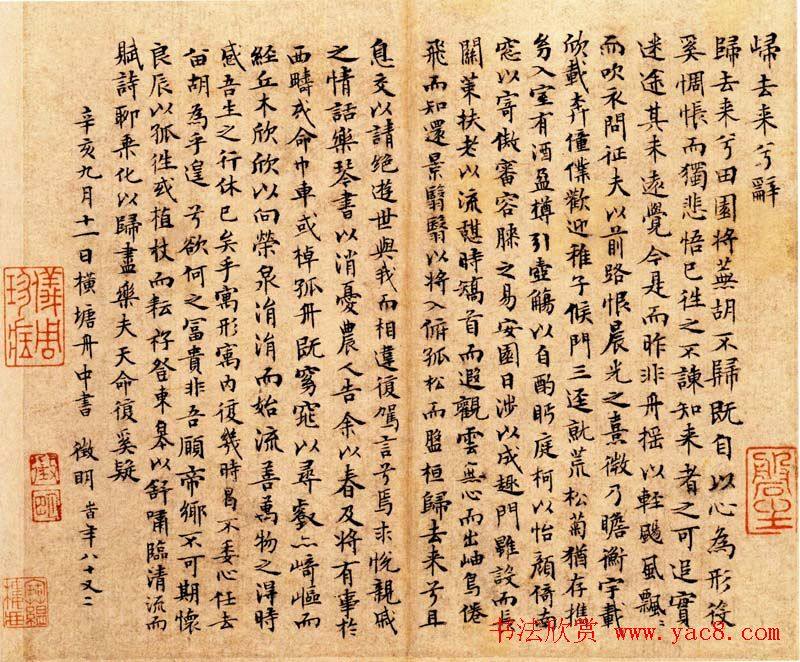 歸去来兮辭
歸去来兮田園將蕪胡不歸既自以心為形役
奚惆悵而獨悲悟已往之不諫知来者之可追實
迷途其未遠覺今是而昨非舟摇以軽颺風飄〻
而吹衣問征夫以前路恨晨光之熹微乃瞻衡宇載
欣載奔僮僕歡迎稚子候門三逕就荒松菊猶存携
幼入室有酒盈樽引壺觴以自酌眄庭柯以怡顔倚南
窓以寄傲審容膝之易安園日涉以成趣門雖設而長
關策扶老以流憩時矯首而遐觀雲無心而出岫鳥倦
飛而知還景翳翳以將入孤松而盤桓歸去来兮且
息交以請絶遊世與我而相違復駕言兮焉求悅親戚
之情話樂琴書以消憂農人告余以春及將有事於
西疇或命巾車或棹孤舟既窈窕以尋壑亦崎嶇而
經丘木欣欣以向榮泉涓涓而始流善萬物之得時
感吾生之行休已矣乎寓形寓内復幾時曷不委心任去
留胡為乎遑兮欲何之富貴非吾願帝鄉不可期懷
良辰以孤往或植杖而耘耔登東皋以舒嘯臨清流而
賦詩聊乘化以歸盡樂夫天命復奚疑
辛亥九月十一日横塘舟中書 徵明 旹年八十又二
儀周珍藏
徵明
书法欣赏 www.yac8.com